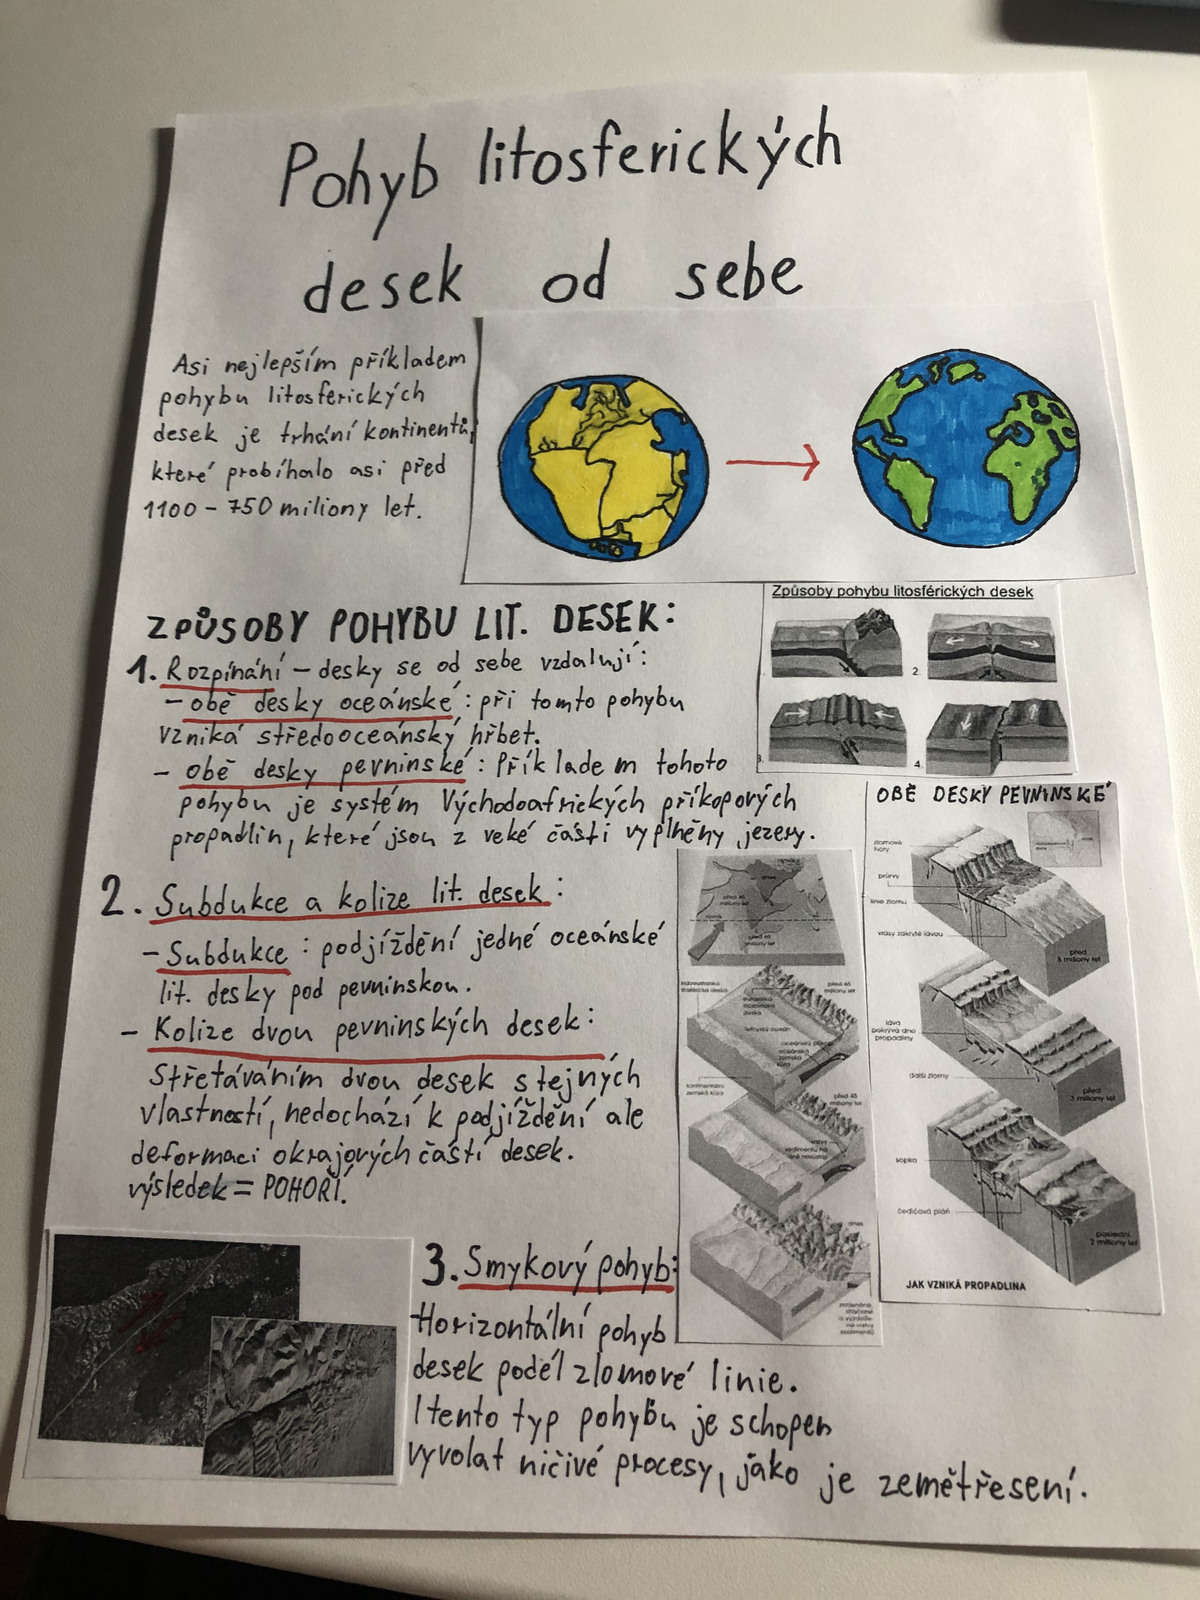 Pohyb litosferických
desek od sebe
Asi nejlepším příkladem
pohybu litosferických
desek je trhání kontinentů,
které probíhalo asi před
1100 - 750 miliony let.
ZPŮSOBY POHYBU LIT. DESEK:
1. Rozpínání - desky se od sebe vzdalují:
- obě desky oceánské: při tomto pohybu
vzniká středooceánský hřbet.
- obě desky pevninské: Příkladem tohoto
pohybu je systém Východoafrických příkopových
propadlin, které jsou z veké části vyplněny jezery.
2. Subdukce a kolize lit. desek:
- Subdukce: podjíždění jedné oceánské
lit. desky pod pevninskou.
- Kolize dvou pevninských desek:
Střetáváním dvou desek stejných
vlastností, nedochází k podjíždění ale
deformaci okrajových částí desek.
výsledek = POHOŘÍ.
3. Smykový pohyb:
Horizontální pohyb
desek podél zlomové linie.
I tento typ pohybu je schopen
vyvolat ničivé procesy, jako je zemětřesení.
Způsoby pohybu litosférických desek
2.
3.
4.
OBĚ DESKY PEVNINSKÉ
zlomové
hory
průrvy
linie zlomu
vrásy zakryté lávou
před
5 miliony let
láva
pokrývá dno
propadliny
další zlomy
před
3 miliony let
sopka
čedičová pláň
poslední
2 miliony let
JAK VZNIKÁ PROPADLINA
dnes
před 65
miliony let
indoaustralská
litosférická deska
před 65
miliony let
euroasijská
litosférická
deska
tethyský oceán
oceánský příkop
oceánská
zemská
kůra
kontinentální
zemská kůra
před 45
miliony let
vrstvy
sedimentů
dnes